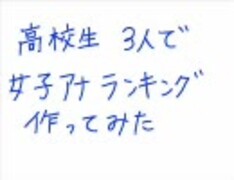 高校生 3人で
女子アナランキング
作ってみた